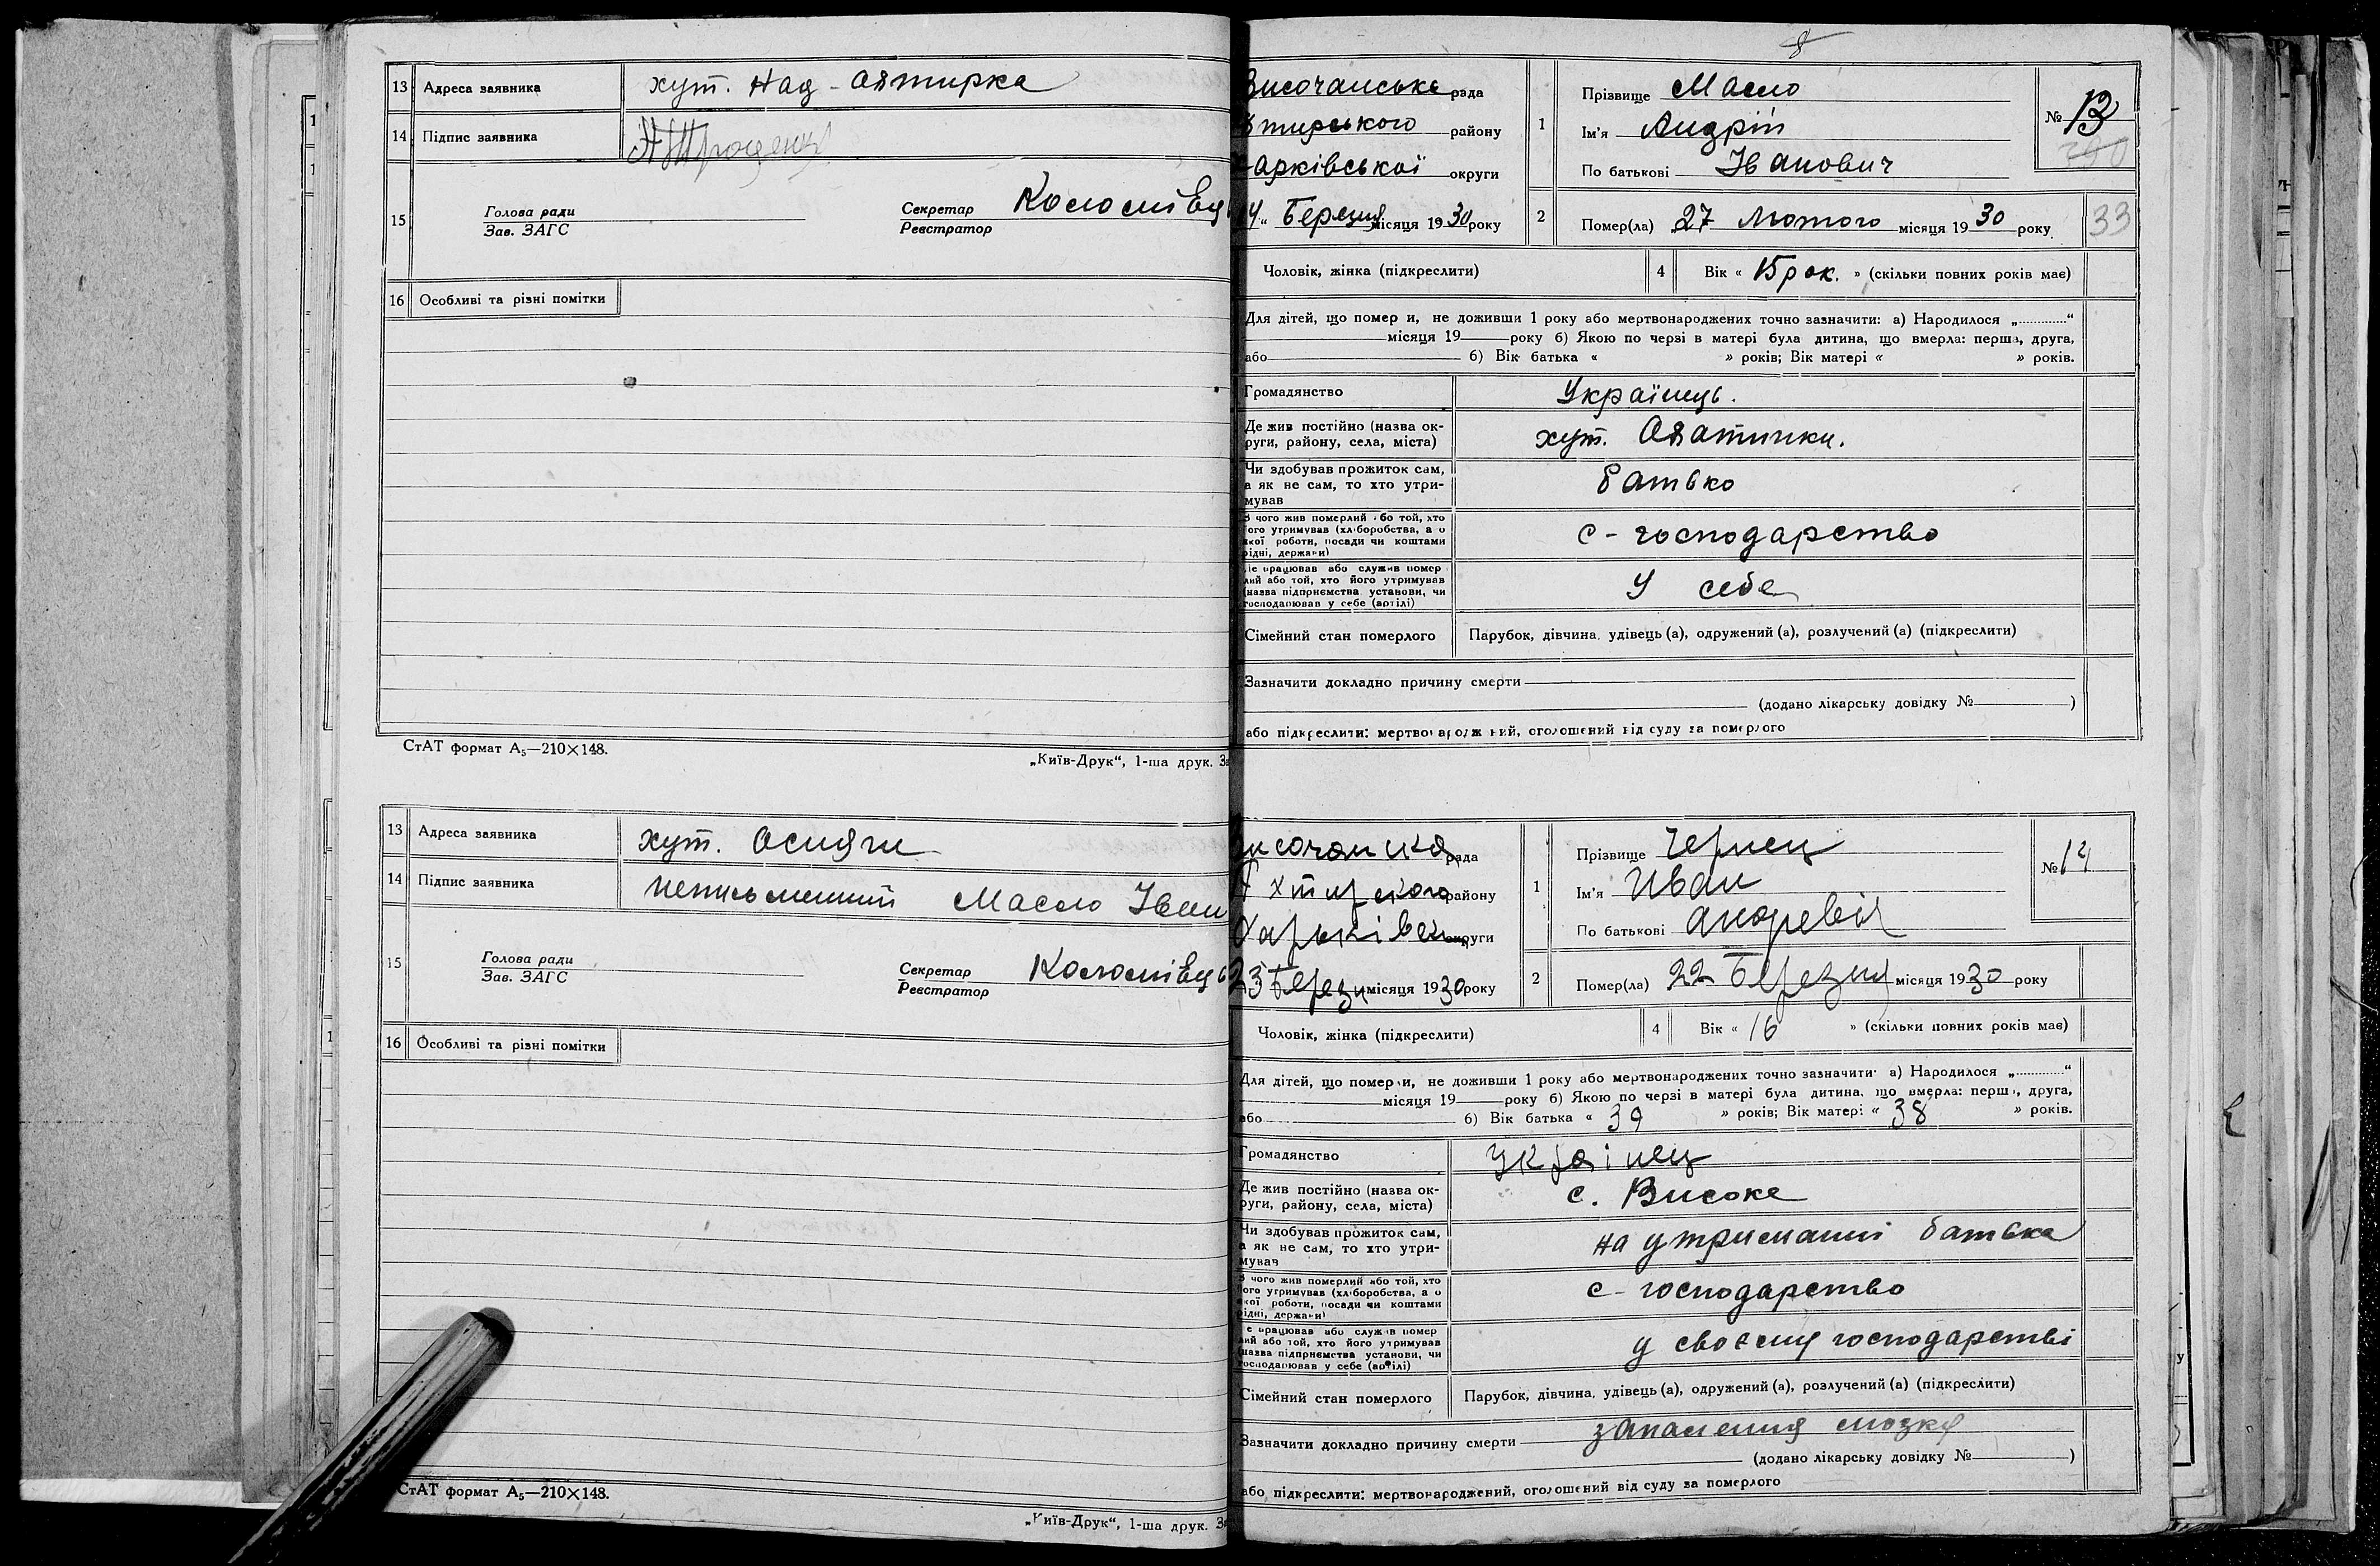 13 Адреса заявника хут. Над-Олтирка
14 Підпис заявника
15 Голова ради
Зав. ЗАГС
Секретар
Реєстратор
16 Особливі та різні помітки
СтАТ формат А₅—210×148.
„Київ-Друк“, 1-ша друк. За
13 Адреса заявника хут. Осняги
14 Підпис заявника неписьменний Масло Іван
15 Голова ради
Зав. ЗАГС
Секретар
Реєстратор
16 Особливі та різні помітки
СтАТ формат А₅—210×148.
„Київ-Друк“, 1-ша друк. За
8
Височанська рада
тирського району
арківської округи
14 „ Березня місяця 1930 року
1 Прізвище Масло
Ім'я Андрій
По батькові Іванович
№ 13
2 Помер(ла) 27 Лютого місяця 1930 року
33
Чоловік, жінка (підкреслити)
4 Вік « 15 рок. » (скільки повних років має)
Для дітей, що помер и, не доживши 1 року або мертвонароджених точно зазначити: а) Народилося „............“
місяця 19 року б) Якою по черзі в матері була дитина, що вмерла: перша, друга,
або б) Вік батька « » років; Вік матері « » років.
Громадянство Українець.
Де жив постійно (назва ок-
руги, району, села, міста) хут.
Чи здобував прожиток сам,
а як не сам, то хто утри-
мував батько
З чого жив померлий або той, хто
його утримував (хліборобства, а о
якої роботи, посади чи коштами
рідні, держави) с-господарство
Де працював або служив помер
лий або той, хто його утримував
(назва підприємства установи, чи
господарював у себе (артілі) У себе
Сімейний стан померлого Парубок, дівчина, удівець (а), одружений (а), розлучений (а) (підкреслити)
Зазначити докладно причину смерти
(додано лікарську довідку № )
або підкреслити: мертвонароджений, оголошений від суду за померлого
рада
хтирского району
Харьківск округи
23 Березн місяця 1930 року
1 Прізвище Чернец
Ім'я Иван
По батькові Андревіч
№ 14
2 Помер(ла) 22 Березня місяця 1930 року
Чоловік, жінка (підкреслити)
4 Вік « 16 » (скільки повних років має)
Для дітей, що помер и, не доживши 1 року або мертвонароджених точно зазначити: а) Народилося „............“
місяця 19 року б) Якою по черзі в матері була дитина, що вмерла: перша, друга,
або б) Вік батька « 39 » років; Вік матері « 38 » років.
Громадянство Українец
Де жив постійно (назва ок-
руги, району, села, міста) с. Високе
Чи здобував прожиток сам,
а як не сам, то хто утри-
мував на утриманні батька
З чого жив померлий або той, хто
його утримував (хліборобства, а о
якої роботи, посади чи коштами
рідні, держави) с-господарство
Де працював або служив помер
лий або той, хто його утримував
(назва підприємства установи, чи
господарював у себе (артілі) у своєму господарстві
Сімейний стан померлого Парубок, дівчина, удівець (а), одружений (а), розлучений (а) (підкреслити)
Зазначити докладно причину смерти запалення мозку
(додано лікарську довідку № )
або підкреслити: мертвонароджений, оголошений від суду за померлого